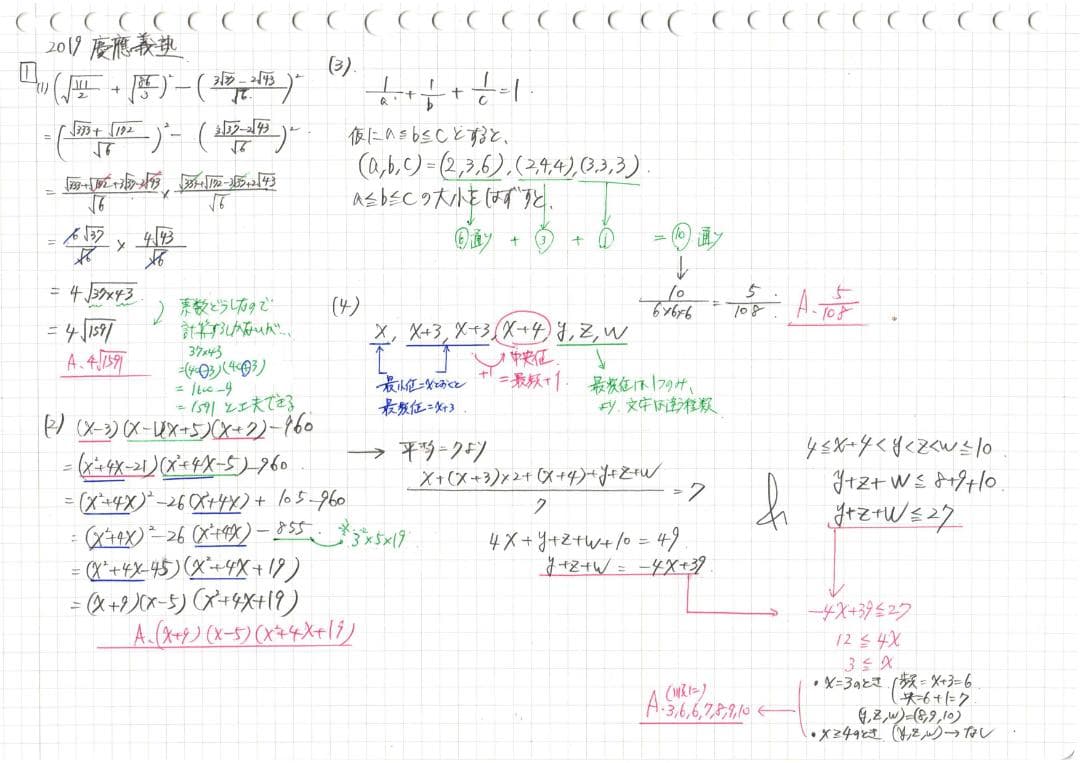 2019 慶應義塾
1
(1) (√(111/2) + √(86/3))² − ((3√37 − 2√43)/√6)²
= ((√333 + √172)/√6)² − ((3√37 − 2√43)/√6)²
= (√333 + √172 + 3√37 − 2√43)/√6 × (√333 + √172 − 3√37 + 2√43)/√6
= 6√37/√6 × 4√43/√6
= 4√37×43
= 4√1591
A. 4√1591
素数どうしなので
計算するしかないが…
37×43
=(40−3)(40+3)
= 1600−9
= 1591 と工夫できる
(2) (x−3)(x−1)(x+5)(x+7)−960
= (x²+4x−21)(x²+4x−5)−960
= (x²+4x)²−26(x²+4x)+105−960
= (x²+4x)²−26(x²+4x)−855
※3²×5×19
= (x²+4x−45)(x²+4x+19)
= (x+9)(x−5)(x²+4x+19)
A. (x+9)(x−5)(x²+4x+19)
(3).
1/a + 1/b + 1/c = 1.
仮に a≦b≦c とすると、
(a,b,c)=(2,3,6),(2,4,4),(3,3,3)
a≦b≦c の大小をはずすと、
⑥通り + ③ + ① = ⑩通り
10/6×6×6 = 5/108. A. 5/108
(4)
x, x+3, x+3, x+4, y, z, w
+1 中央値
= 最頻+1.
最小値=xとおくと
最頻値=x+3.
最頻値は1つのみ
より、文字は違う整数
→ 平均=7より
(x+(x+3)×2+(x+4)+y+z+w)/7 = 7
4x+y+z+w+10=49
y+z+w = −4x+39
4≦x+4<y<z<w≦10
y+z+w≦8+9+10
y+z+w≦27
−4x+39≦27
12≦4x
3≦x
・x=3のとき 頻=x+3=6
央=6+1=7
(y,z,w)=(8,9,10)
・x≧4のとき (y,z,w)→なし
(順に)
A. 3,6,6,7,8,9,10